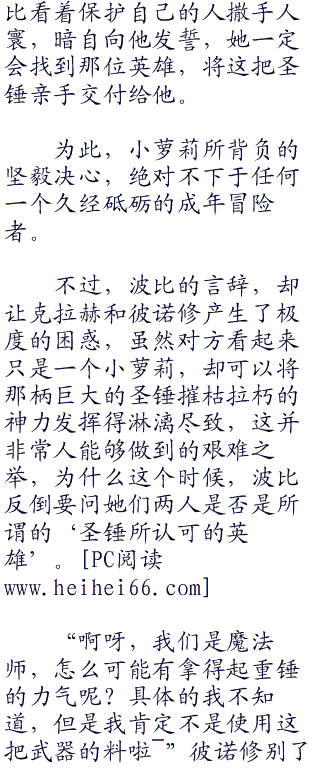 比看着保护自己的人撒手人
寰，暗自向他发誓，她一定
会找到那位英雄，将这把圣
锤亲手交付给他。
为此，小萝莉所背负的
坚毅决心，绝对不下于任何
一个久经砥砺的成年冒险
者。
不过，波比的言辞，却
让克拉赫和彼诺修产生了极
度的困惑，虽然对方看起来
只是一个小萝莉，却可以将
那柄巨大的圣锤摧枯拉朽的
神力发挥得淋漓尽致，这并
非常人能够做到的艰难之
举，为什么这个时候，波比
反倒要问她们两人是否是所
谓的‘圣锤所认可的英
雄’。[PC阅读
www.heihei66.com]
“啊呀，我们是魔法
师，怎么可能有拿得起重锤
的力气呢？具体的我不知
道，但是我肯定不是使用这
把武器的料啦¯”彼诺修别了